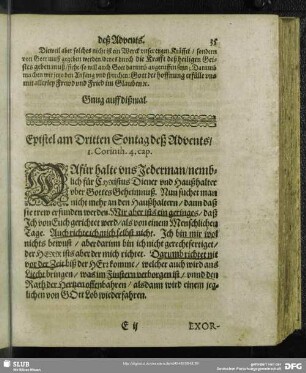 deß Advents. 35
Dieweil aber solches nicht ist ein Werck unser eygen Kräfften / sondern
von Gott muß gegeben werden denen durch die Krafft deß heiligen Gei-
machen wir jetzo den Anfang und sprechen: Gott der hoffnung erfülle uns
mit allerley Frewd und Fried im Glauben rc.
Gnug auff dißmal.
Epistel am Dritten Sontag deß Advents /
1. Corinth. 4. cap.
DAfür halte uns Jederman / nemb-
lich für CHristus Diener und Haußhalter
uber Gottes Geheimnuß. Nun suchet man
nicht mehr an den Haußhaltern / dann daß
sie trew erfunden werden. Mir aber ists ein geringes / daß
Ich von Euch gerichtet werd / als von einem Menschlichen
Tage. Auch richte ich mich selbst nicht. Ich bin mir wol
nichts bewust / aber darinn bin ich nicht gerechtfertiget /
der HERR ists aber der mich richtet. Darumb richtet nit
vor der Zeit / biß der HErr komme / welcher auch wird ans
Liecht bringen / was im Finstern verborgen ist / unnd den
Rath der Hertzen offenbahren / alsdann wird einem jeg-
lichen von GOtt Lob wiederfahren.
E ij EXOR-
SLUB
Wir führen Wissen.
Gefördert von der
Deutschen Forschungsgemeinschaft
DFG